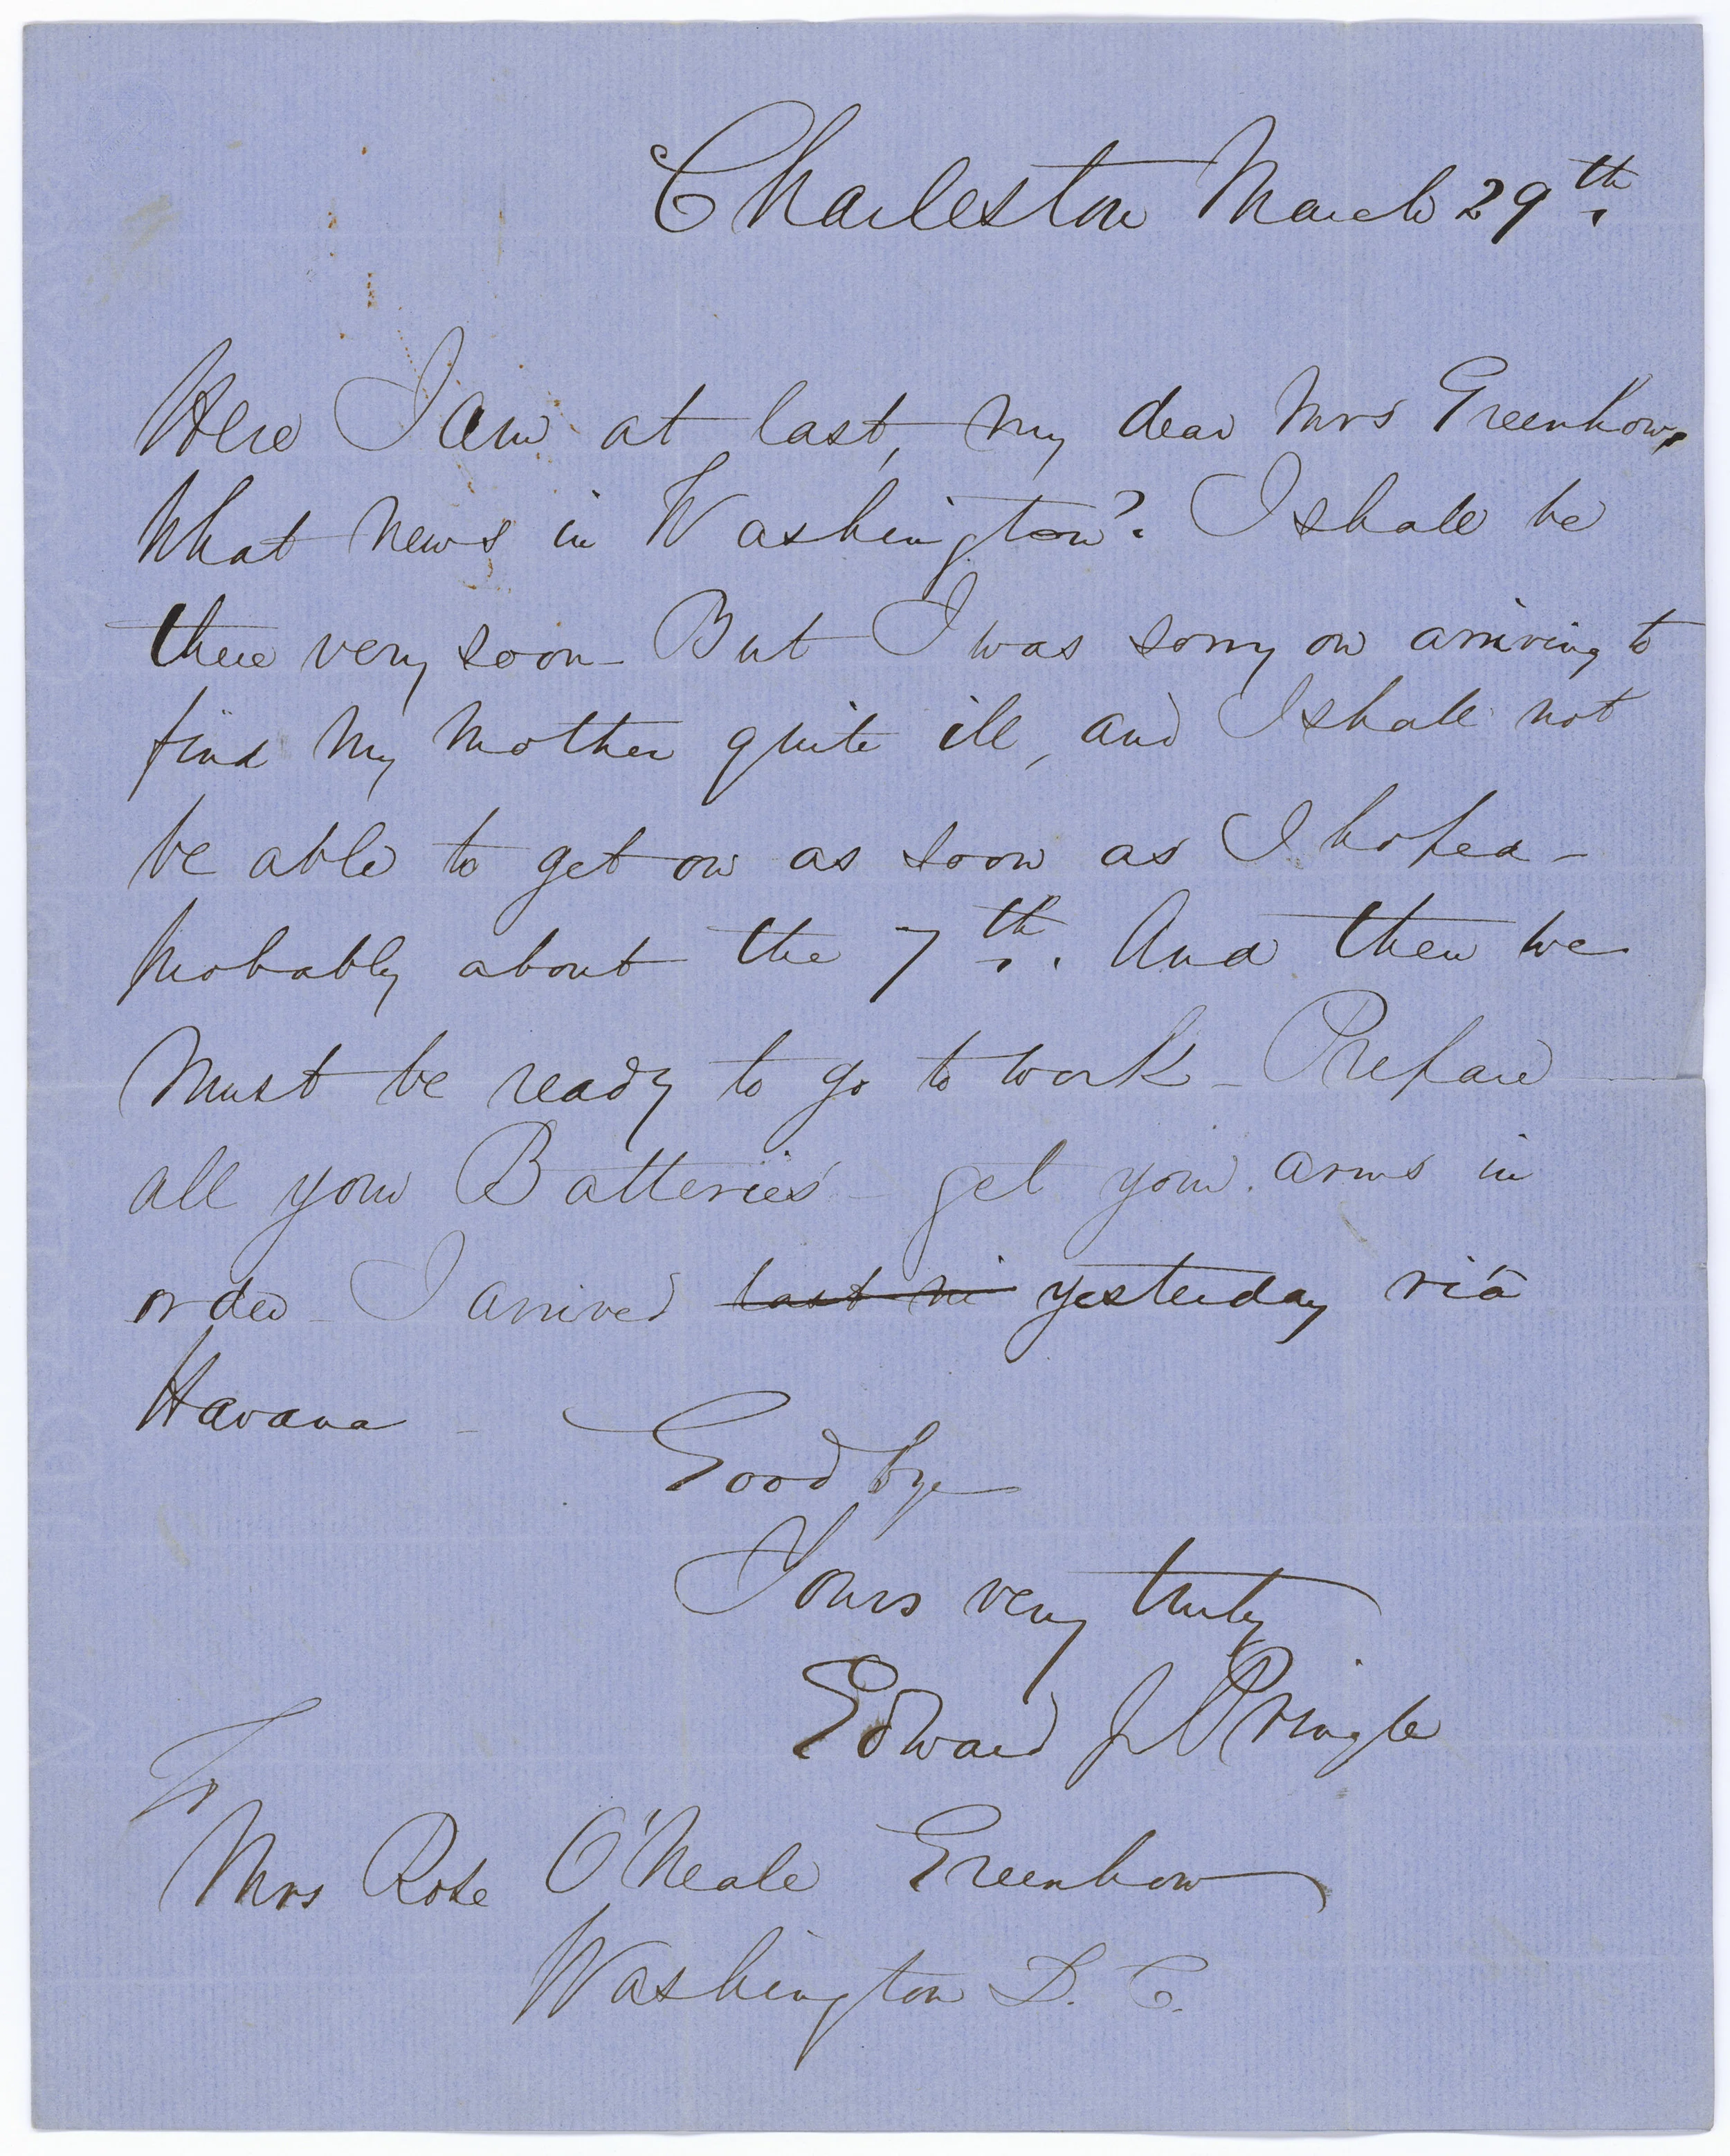 Charleston March 29th.
Here I am at last, my dear Mrs Greenhow,
What news in Washington? I shall be
there very soon - But I was sorry on arriving to
find my mother quite ill, and I shall not
be able to get on as soon as I hoped -
Probably about the 7th. And then we
must be ready to go to work - Prepare
all your Batteries - get your arms in
order - I arrived last ni yesterday viâ
Havana -
Good bye
Yours very truly
Edward J Pringle
To
Mrs Rose O'Neale Greenhow
Washington D. C.